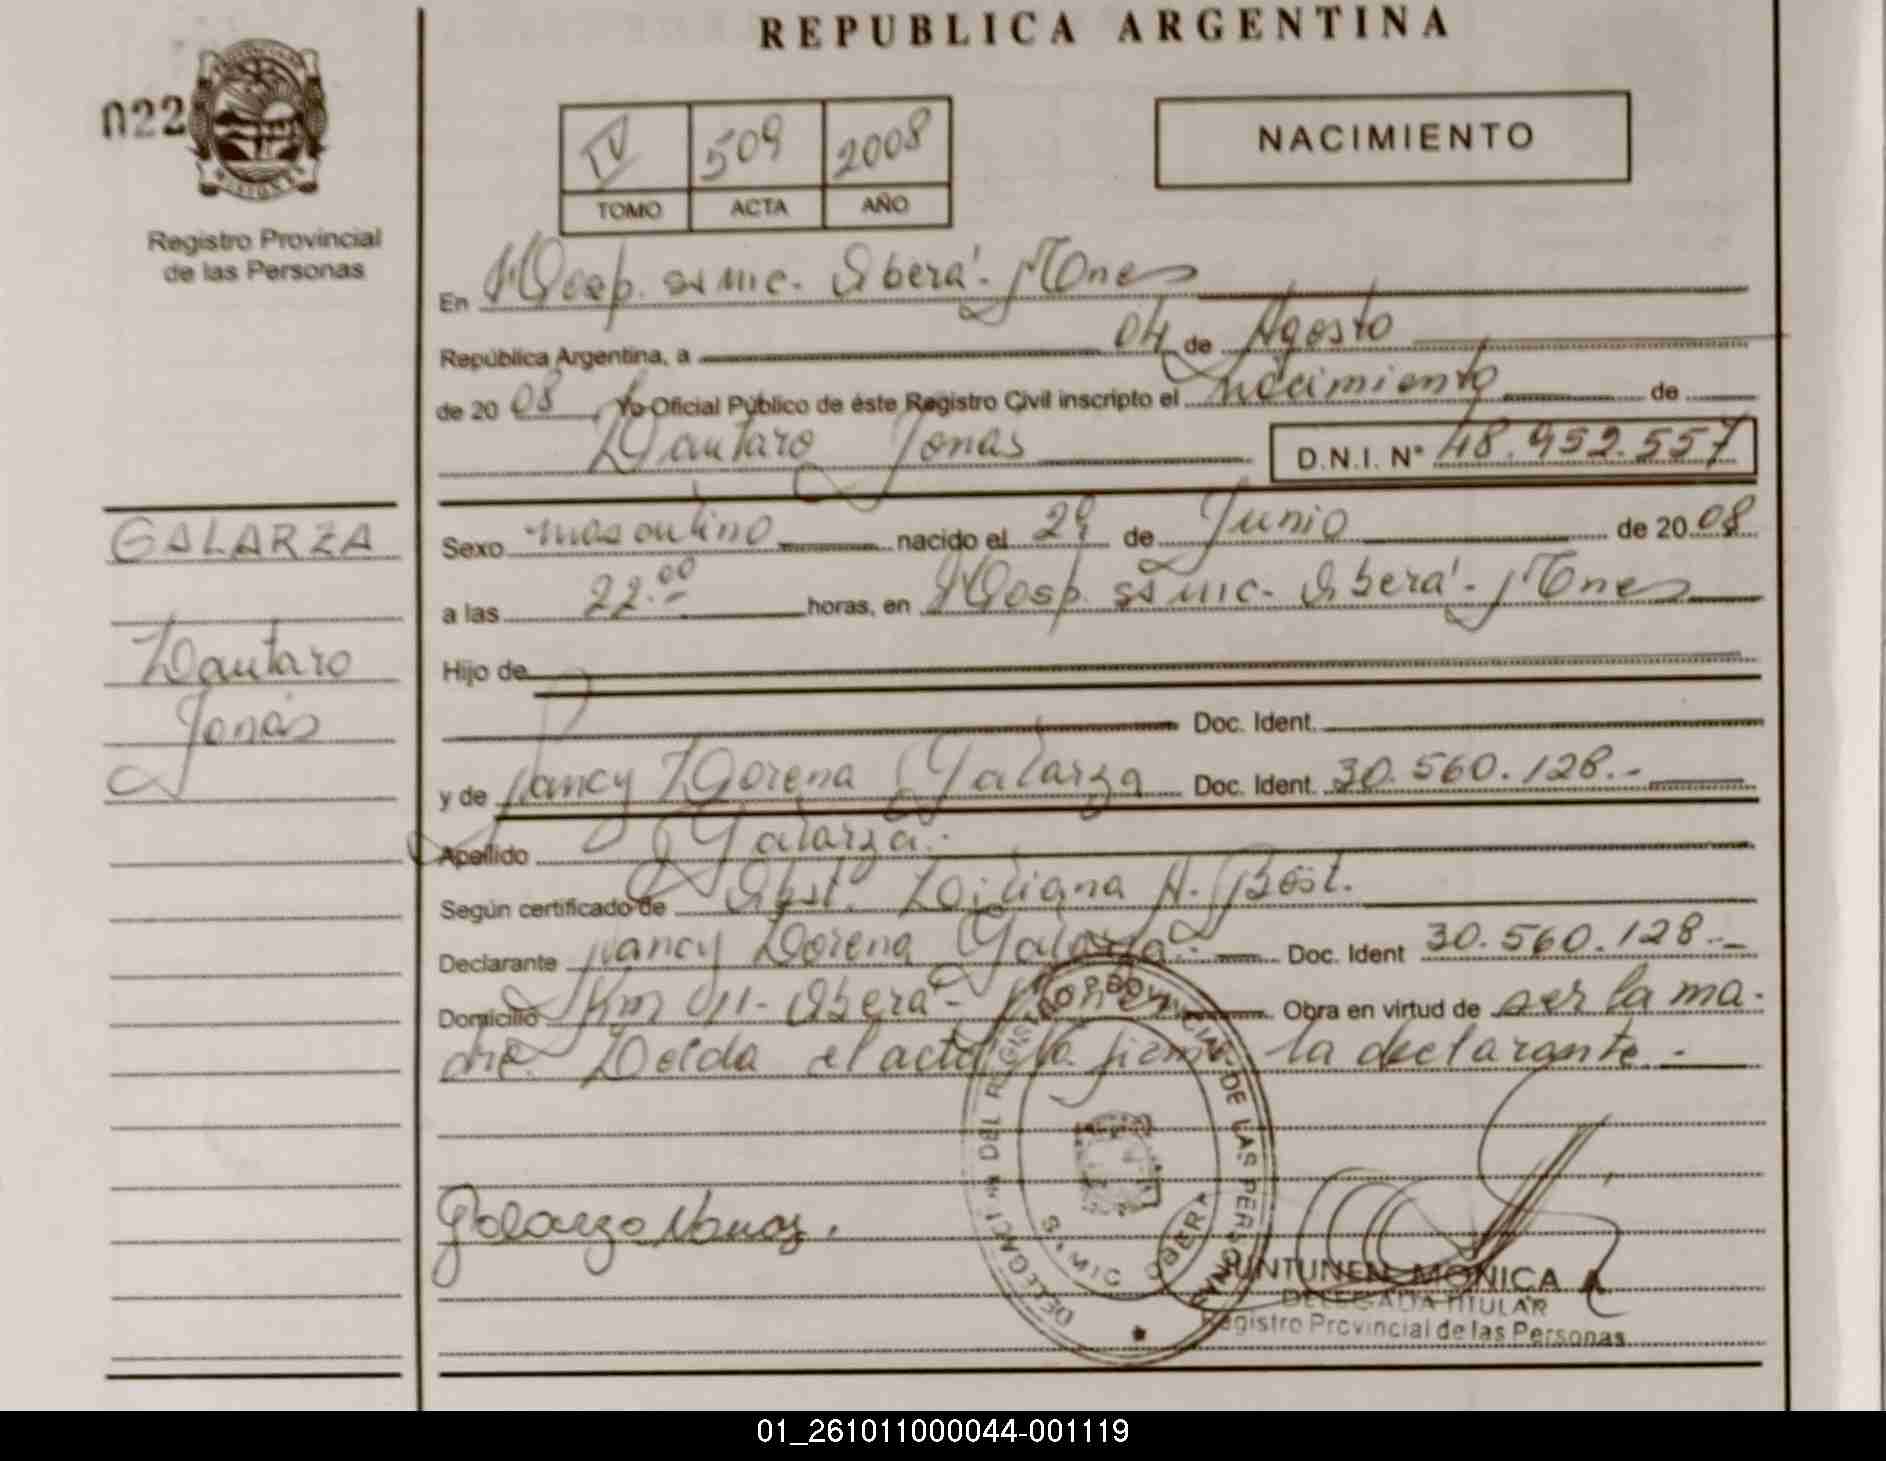 REPUBLICA ARGENTINA
022
Registro Provincial
de las Personas
IV 509 2008
TOMO ACTA AÑO
NACIMIENTO
En Hosp. SAMIC. Oberá. Mnes
República Argentina, a 04 de Agosto
de 2008, Yo Oficial Público de éste Registro Civil inscripto el nacimiento de
Lautaro Jonas D.N.I. N° 48.952.557
GALARZA
Lautaro
Jonás
Sexo masculino nacido el 29 de Junio de 2008
a las 22.00 horas, en Hosp. SAMIC. Oberá. Mnes
Hijo de
Doc. Ident.
y de Nancy Lorena Galarza Doc. Ident. 30.560.128.-
Apellido Galarza.
Según certificado de Obst. Liliana A. Böst.
Declarante Nancy Lorena Galarza.- Doc. Ident 30.560.128.-
Domicilio Km 011- Oberá- Obra en virtud de ser la ma-
dre. Leida el acta la firma la declarante.-
Galarza Nancy.
DELEGACION DEL REGISTRO PROVINCIAL DE LAS PERSONAS
SAMIC OBERA
JUNTUNEN MONICA A
DELEGADA TITULAR
Registro Provincial de las Personas
01_261011000044-001119